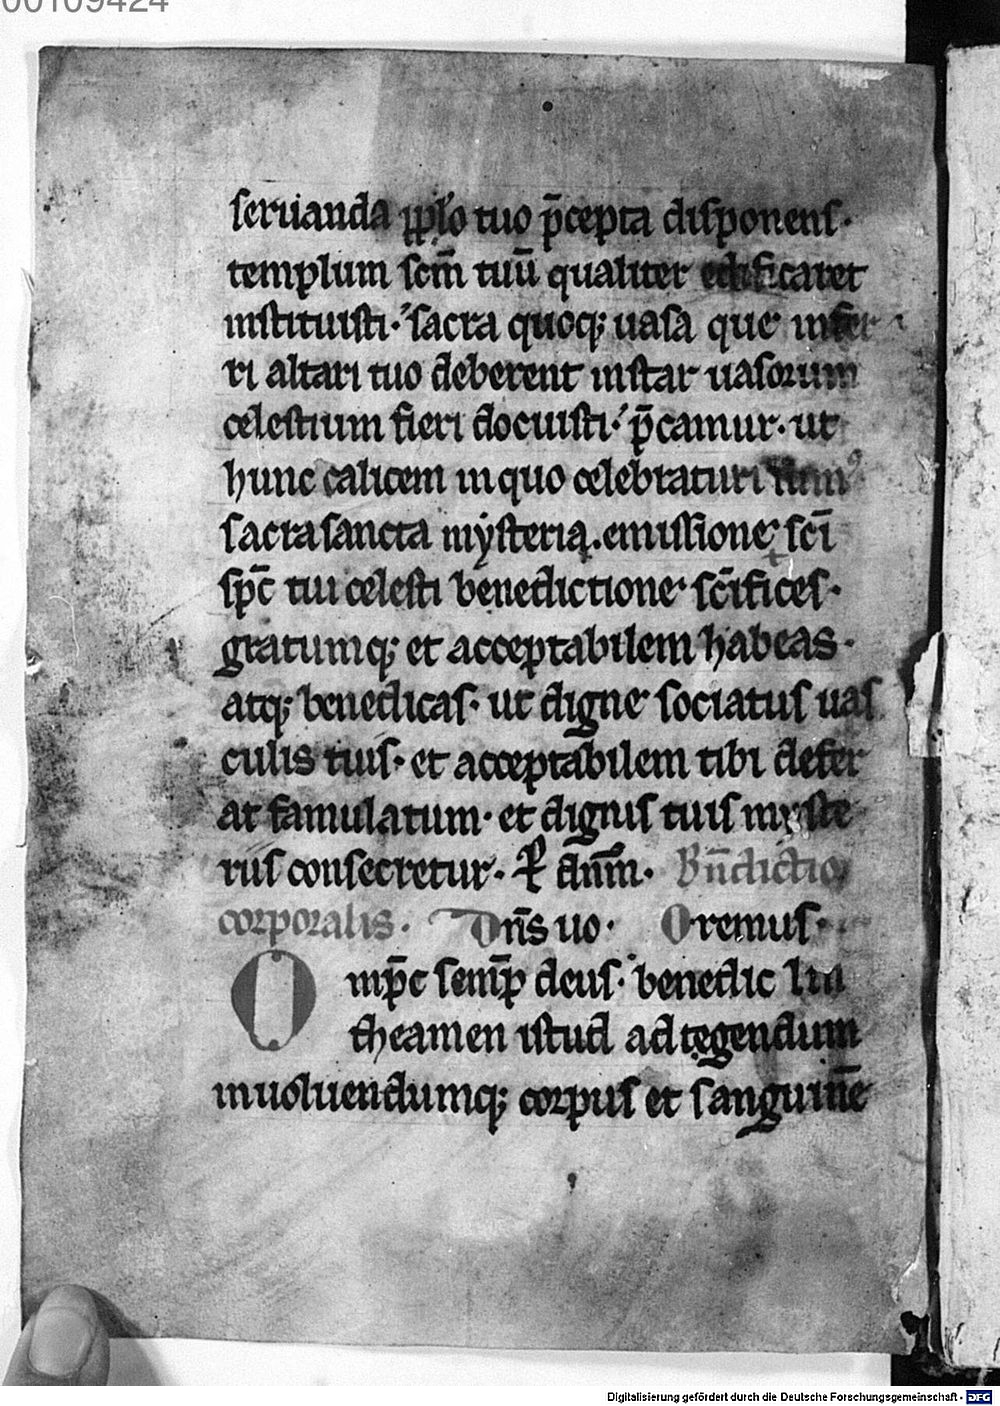 00109424
seruanda pplo tuo p̄cepta disponens·
templum scm̄ tuū qualiter edificaret
instituisti· sacra quoq; uasa que infer
ri altari tuo deberent instar uasorum
celestium fieri docuisti· p̄camur· ut
hunc calicem in quo celebraturi sumꝰ
sacrasancta mẏsteria. emissione sc̄i
sp̄c tui celesti benedictione sc̄ifices·
gratumq; et acceptabilem habeas·
atq; benedicas· ut digne sociatus uas
culis tuis· et acceptabilem tibi defer
at famulatum· et dignis tuis myste
riis consecretur· P̲ dn̄m· Bn̄dictio
corporalis· Dn̄s uo· Oremus·
Omp̄c semp̄ deus· benedic lin
theamen istud ad tegendum
inuoluendumq; corpus et sanguinē
Digitalisierung gefördert durch die Deutsche Forschungsgemeinschaft - DFG